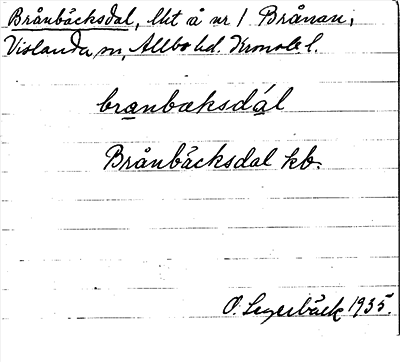 Brånbäcksdal, lht å nr 1 Brånan,
Vislanda sn, Allbo hd. Kronob. l.
branbæksdál
Brånbäcksdal kb.
O. Segerbäck 1935.